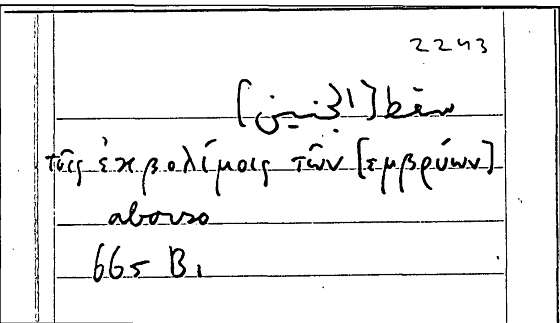 2243
سقط [الجنين]
τοῖς ἐκβολίμοις τῶν [εμβρύων]
aborso
665 B1